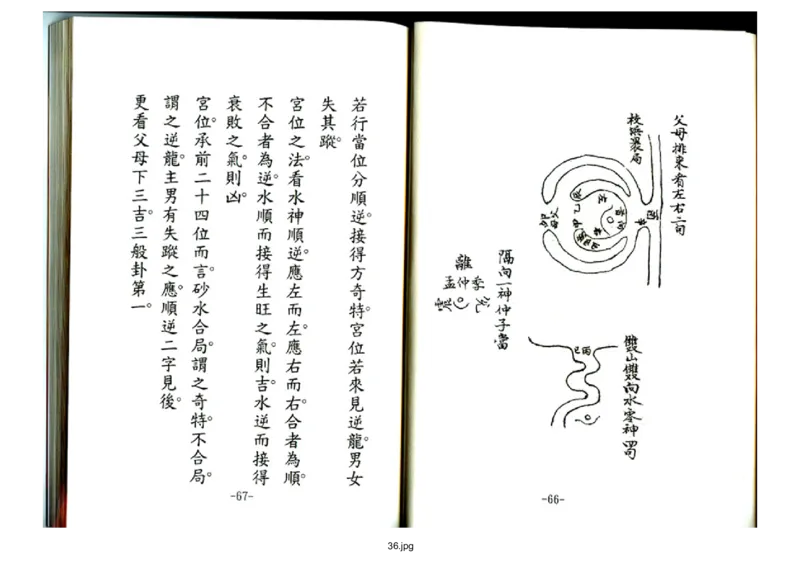 父母排來看左右二句
校臨罡局
酉
卯
父母
隔向一神仲子當
離
孟仲季
雙山雙向水零神四句
丙
巳
-66-
若行當位分順逆。接得方奇特。宮位若來見逆龍。男女
失其蹤。
宮位之法。看水神順逆。應左而左。應右而右。合者為順。
不合者為逆。水順而接得生旺之氣。則吉。水逆而接得
衰敗之氣。則凶。
宮位。承前二十四位而言。砂水合局。謂之奇特。不合局。
謂之逆龍。主男有失蹤之應。順逆二字見後。
更看父母下三吉。三般卦第一。
-67-
36.jpg